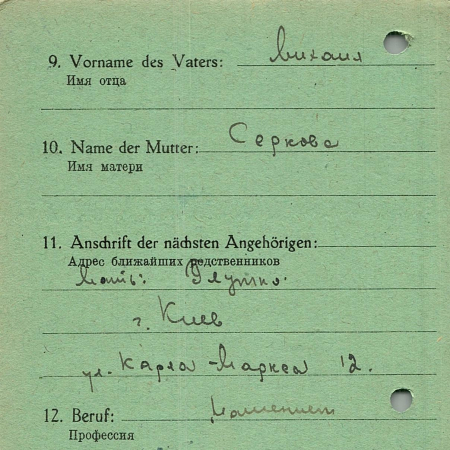 9. Vorname des Vaters: Михаил
Имя отца
10. Name der Mutter: Серкова
Имя матери
11. Anschrift der nächsten Angehörigen:
Адрес ближайших родственников
Мать: Глушко.
г. Киев
ул. Карла Маркса 12.
12. Beruf:
Профессия